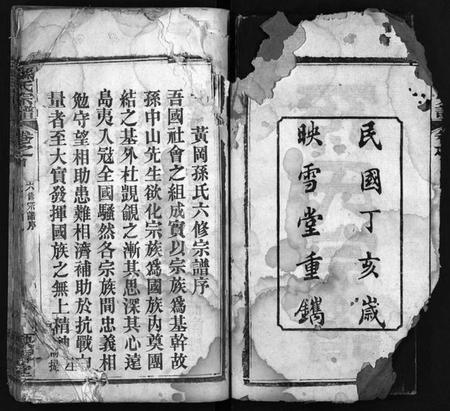 民國丁亥歲
映雪堂重鐫
黃岡孫氏六修宗譜序
吾國社會之組成實以宗族爲基幹故
孫中山先生欲化宗族爲國族內奠團
結之基外杜覬覦之漸其思深其心遠
島夷入寇全國騷然各宗族間忠義相
勉守望相助患難相濟補助於抗戰
量者至大實發揮國族之無上精神
孫氏宗譜
卷之首
六修宗譜序